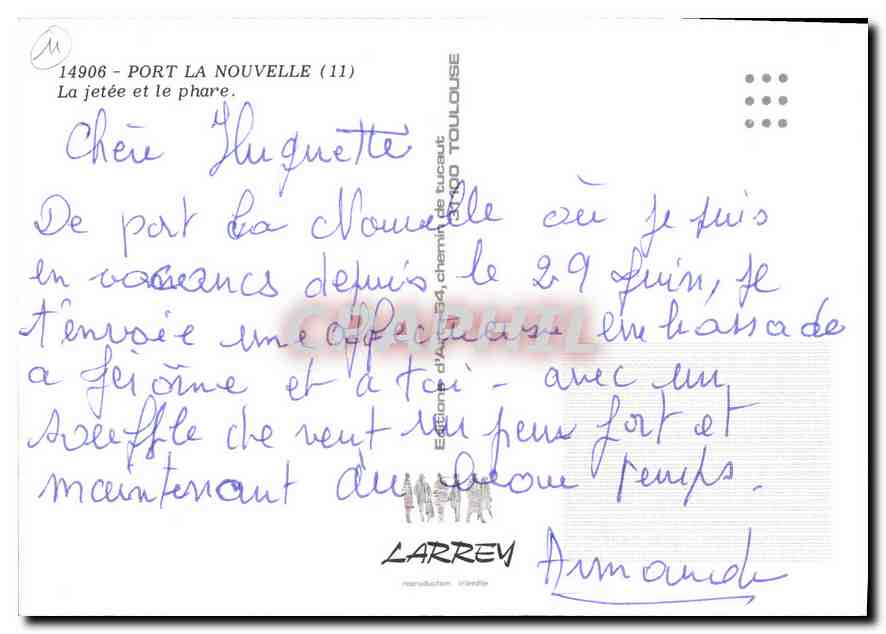 11
14906 - PORT LA NOUVELLE (11)
La jetée et le phare.
Chère Huguette
De port La Nouvelle où je suis
en vacances depuis le 29 juin, je
t'envoie une affectueuse embrassade
a Jérôme et à toi - avec un
souffle de vent un peu fort et
maintenant du beau temps.
Armande
Editions d'Art - 54, chemin de tucaut
31100 TOULOUSE
LARREY
reproduction interdite